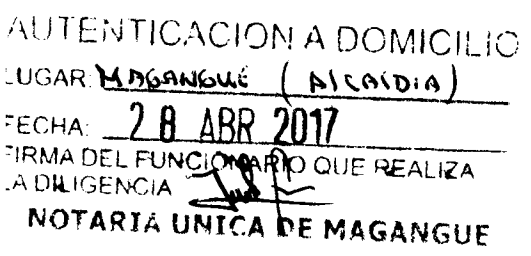 AUTENTICACION A DOMICILIO
LUGAR: MAGANGUÉ (AlCAlDiA)
FECHA: 28 ABR 2017
FIRMA DEL FUNCIONARIO QUE REALIZA
LA DILIGENCIA
NOTARIA UNICA DE MAGANGUE